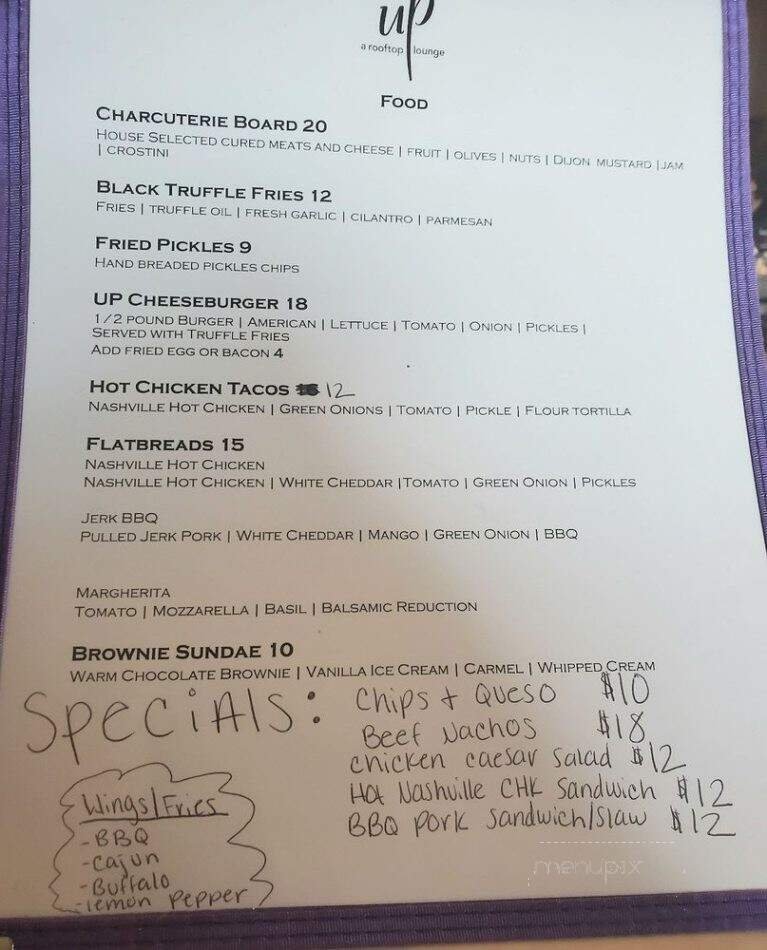 up
a rooftop lounge
Food
Charcuterie Board 20
House Selected cured meats and cheese | fruit | olives | nuts | Dijon mustard |jam
| crostini
Black Truffle Fries 12
Fries | truffle oil | fresh garlic | cilantro | parmesan
Fried Pickles 9
Hand breaded pickles chips
UP Cheeseburger 18
1/2 pound Burger | American | Lettuce | Tomato | Onion | Pickles |
Served with Truffle Fries
Add fried egg or bacon 4
Hot Chicken Tacos 12
Nashville Hot Chicken | Green Onions | Tomato | Pickle | Flour tortilla
Flatbreads 15
Nashville Hot Chicken
Nashville Hot Chicken | White Cheddar |Tomato | Green Onion | Pickles
Jerk BBQ
Pulled Jerk Pork | White Cheddar | Mango | Green Onion | BBQ
Margherita
Tomato | Mozzarella | Basil | Balsamic Reduction
Brownie Sundae 10
Warm Chocolate Brownie | Vanilla Ice Cream | Carmel | Whipped Cream
Specials:
Chips + Queso $10
Beef Nachos $18
chicken caesar salad $12
Hot Nashville CHK Sandwich $12
BBQ Pork Sandwich/Slaw $12
Wings/Fries
-BBQ
-Cajun
-Buffalo
-lemon pepper
menupix